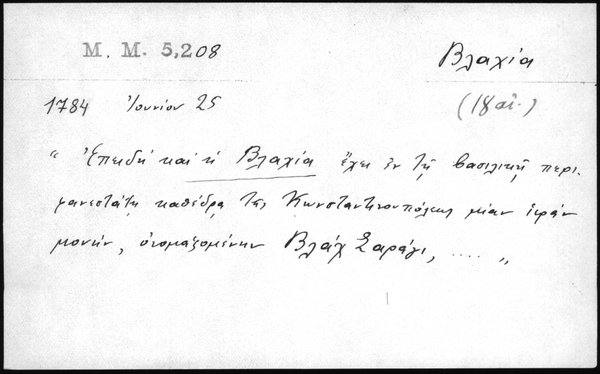 M. M. 5,208
Βλαχία
1784 Ἰουνίου 25
(18 αἰ.)
" Ἐπειδή καί ἡ Βλαχία ἔχει ἐν τῇ βασιλικῇ περι-
φανεστάτῃ καθέδρᾳ τῆς Κωνσταντινουπόλεως μίαν ἱεράν
μονήν, ὀνομαζομένην Βλάχ Σαράγι, .... "